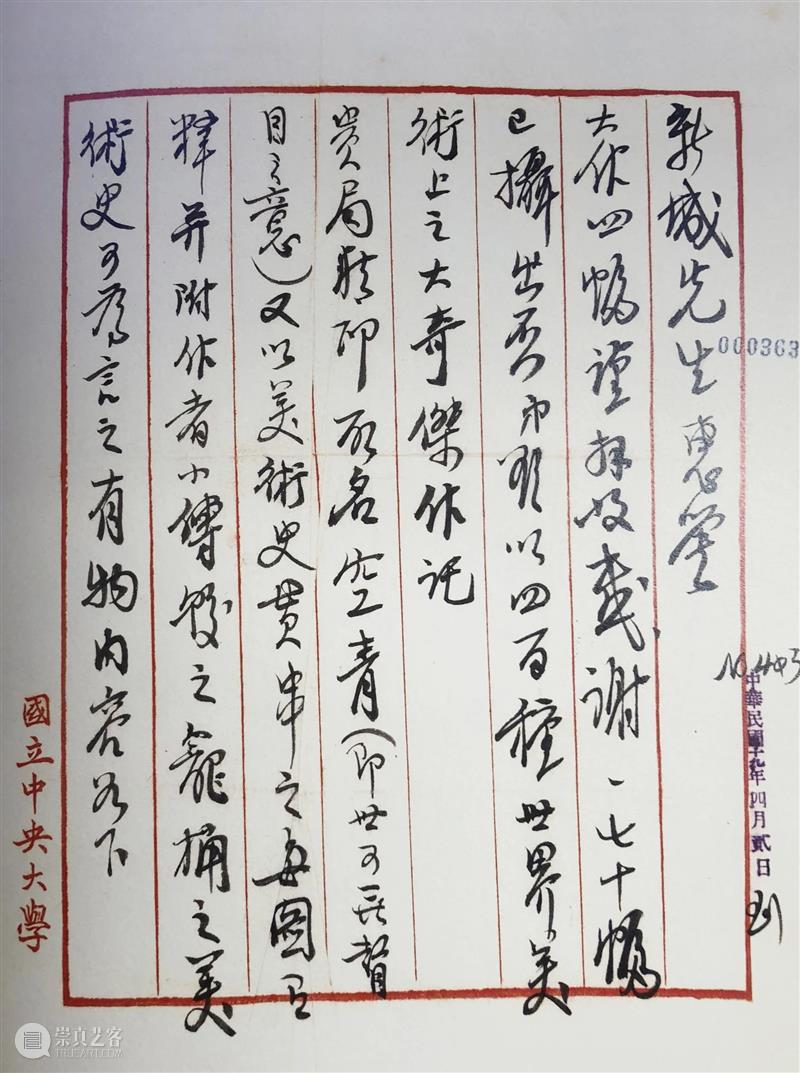 新城先生惠鑒
大作四幅謹拜收感謝〻七十幅
已攝出否弟以四百種世界美
術上之大奇傑作託
貴局精印取名空青（即世可無瞽
目之意）又以美術史貫串之每圖
釋并附作者小傳較之籠桶之美
術史可為言之有物內容如下
國立中央大學
000363
中華民國十九年四月貳日
到